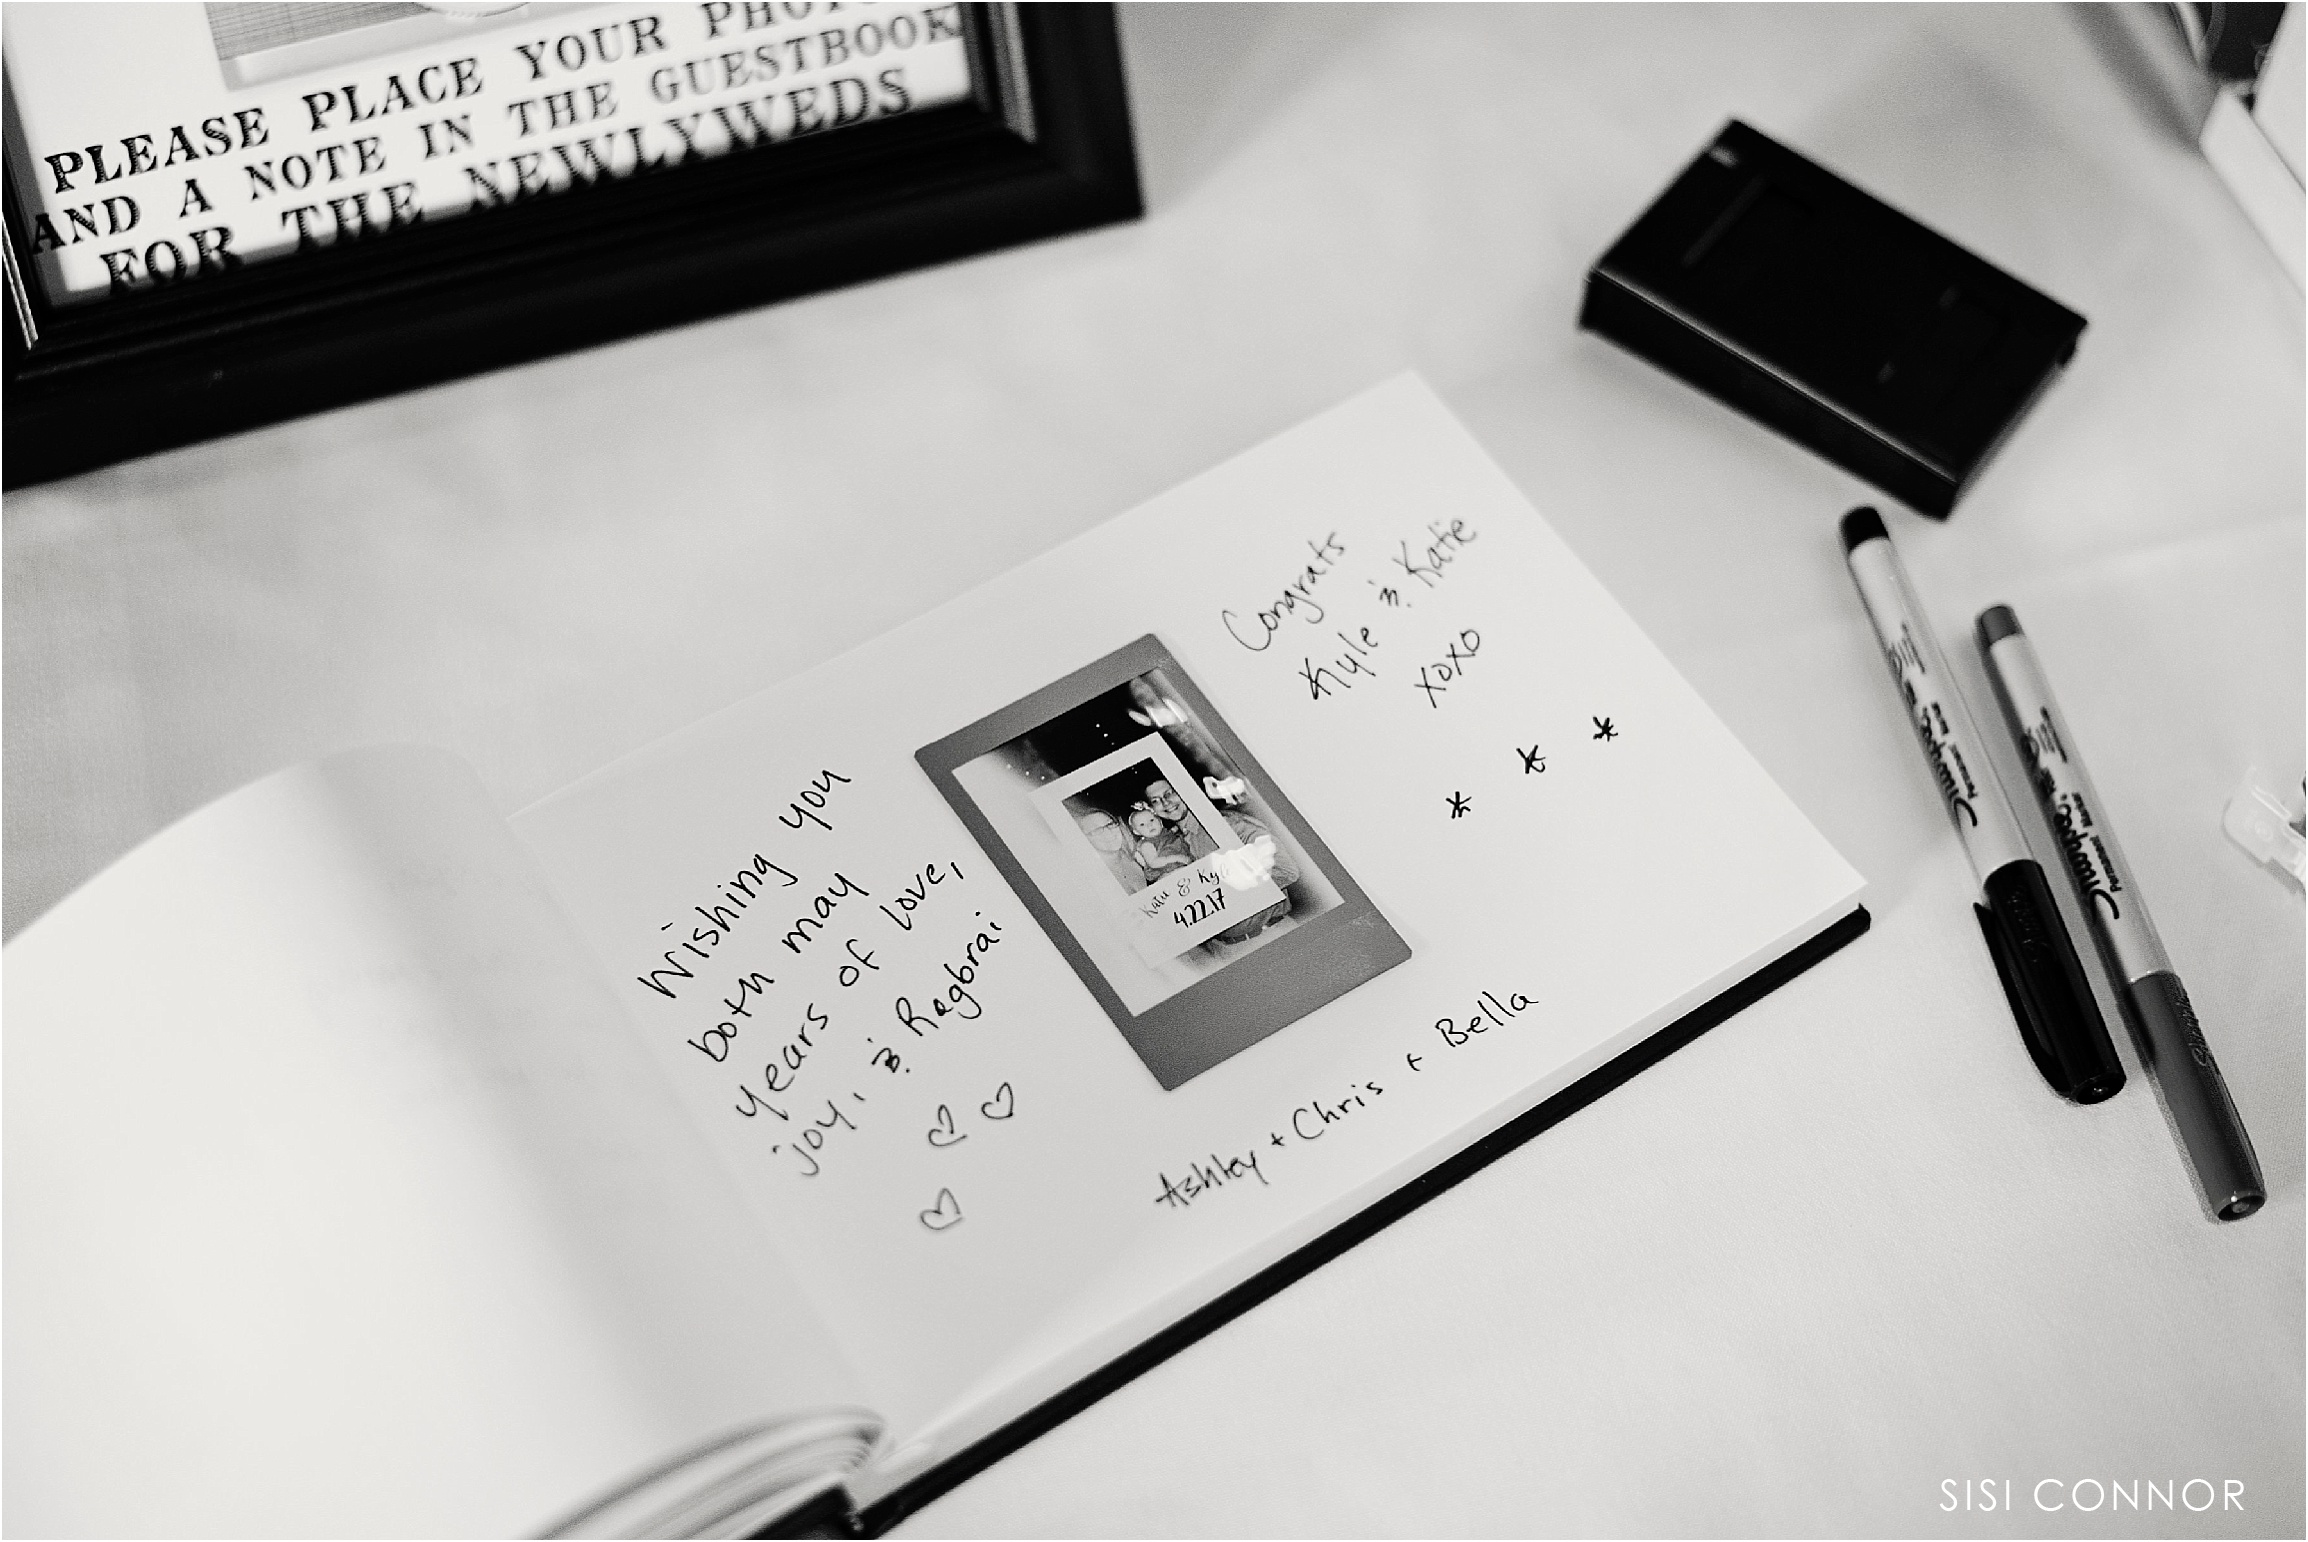 PLEASE PLACE YOUR PHOTO
AND A NOTE IN THE GUESTBOOK
FOR THE NEWLYWEDS
Wishing you
both many
years of love,
joy, & Ragbrai
Congrats
Kyle & Katie
xoxo
* * *
Katie & Kyle
4.22.17
Ashley + Chris + Bella
Sharpie
Permanent Marker
Sharpie
Permanent Marker
SISI CONNOR